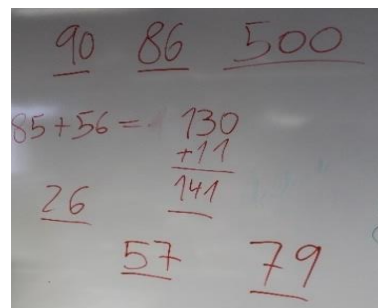 90 86 500
85+56= 130
+11
26 141
57 79